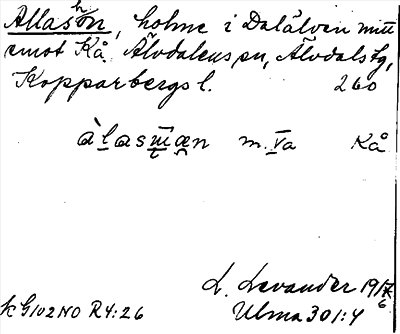 Allashon, holme i Dalälven mitt
emot Kå Älvdalens sn, Älvdals tg,
Kopparbergs l. 260
àlasm̅æn m. Va Kå
L. Levander 19 17/6
k G102 NO R4:26 Ulma 301:4